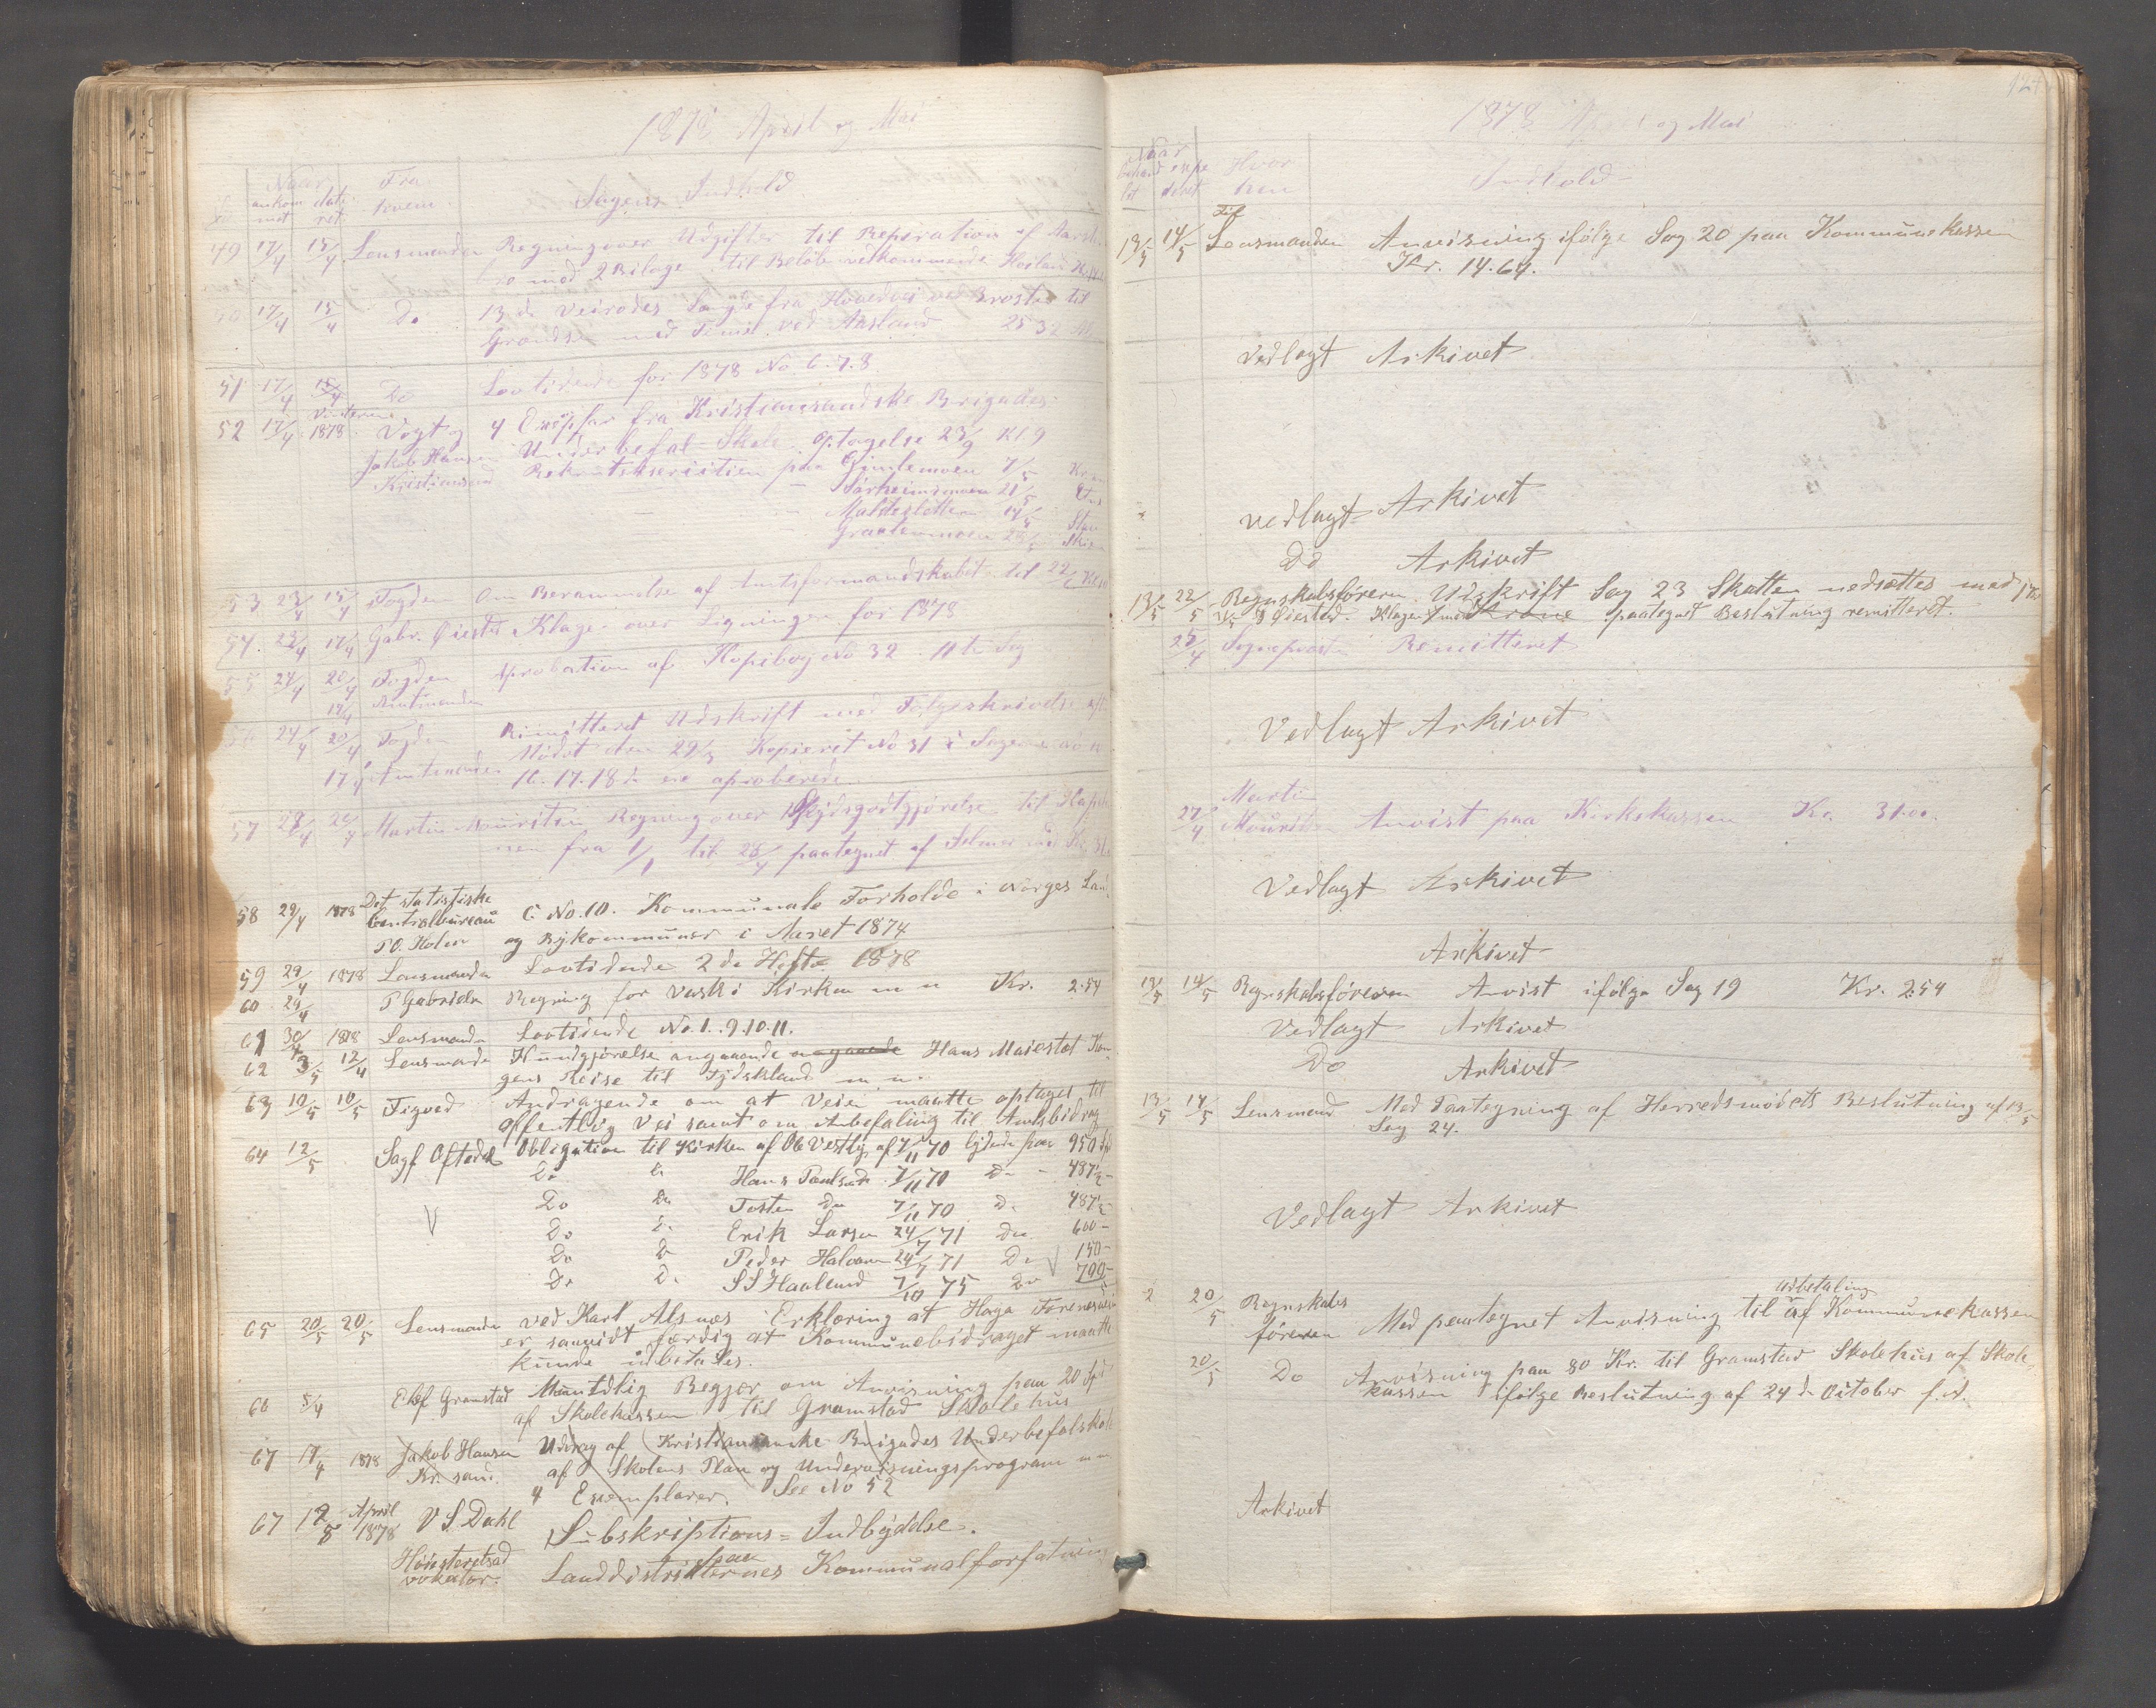 1878 April og Mai
Naar
Fra
ankom dati
hvem
Sagens Indhold
met ret
49 17/4 15/4 Lensmanden Regning over Udgifter til Reperation af
bro med 2 Bilage til Beløb vedkommende
17/4 15/4 Do 13 de Veirodes Længde fra Hovedvei ved til
Grændsen med ved Aasland 2532
51 17/4 15/4 Do Lovtidende for 1878 No 6.7.8.
52 17/4 1878 Vogt og 4 Exempl fra Kristiansandske Brigades
Jakob Hansen Underbefal-Skole. Optagelse 23/9 Kl 9
Kristiansand paa Gimlemoen 7/5
21/5
14/5
53 23/4 15/4 Fogden Om Berammelse af Amtsformandskabet til 22/6
54. 23/4 17/4 Gabr. Øiestad Klage over Ligningen for 1878
55 24/4 20/4 Fogden Aprobation af Kopibog No 32 11te Sag
Amtmanden
56 24/4 20/4 Fogden Rimitteret Udskrift med Følgeskrivelse
17/4 Amtmanden Mødet den 29/3 Kopieret No 31 i Sagerne
16.17.18 de ere aproberede
57 28/4 Martin Mouritsen Regning over Skydsgodtgjørelse til
nen fra 1/1 til 28/4 paategnet af
58 29/4 1878 Det statistiske
Centralbureau C. No. 10. Kommunale Forholde i Norges Land
og Bykommuner i Aaret 1874
59 29/4 1878 Lensmanden Lovtidende 2 de Hefte 1878
60 29/4 P Gabrielsen Regning for Vask i Kirken m n Kr. 2.54
61 30/4 1878 Lensmanden Lovtidende No. 1. 9.10.11.
62 3/5 12/4 Lensmande Kundgjørelse angaaende angaaende Hans Maiestæt Kon-
gens Reise til Tydskland m. n.
63 10/5 10/5 Tigved Andragende om at Veien maatte optages til
offentlig Vei samt om Anbefaling til Amtsbidrag
64 12/5 Sagf Oftedal Obligation til Kirken af Ole Vestly af 7/11 70 lydende paa 950 Spd
Do Do Hans Paulsen 7/11 70 Do - 487½ -
Do Do Tosten Do 7/11 70 Do 487½
Do Do Erik Larsen 24/7 71 Do 600 -
Do Do Peder Halvorsen 24/7 71 Do 150 -
Do Do S S Haaland 7/10 75 Do 700
65 20/5 20/5 Lensmanden ved Karl Alsnes Erklæring at Haga
er saavidt færdig at Kommunebidraget maatte
kunde udbetales.
66 5/4 Elef Gramstad Mundtlig Begjær om Anvisning paa 20 Spd
af Skolekassen til Gramstad Skolehus
67 17/4 1878 Jakob Hansen Uddrag af Kristiansandske Brigades Underbefalskole
Kr. sand. af Skolens Plan og Undervisningsprogram m n
4 Exemplarer. See No 52
67 18/5 April 1878 V S. Dahl Subskriptions=Indbydelse.
Høiesteretsad
vokater. paa
Landdistrikternes Kommunalforfatning
124
1878 April og Mai
Naar
behand expe Hvor
let deret hen Indhold
13/5 14/5 Til Lensmanden Anvisning ifølge Sag 20 paa Kommunekassen
Kr. 14.64.
Vedlagt Arkivet
vedlagt Arkivet
Do Arkivet
13/5 22/5 Regnskabsføreren Udskrift Sag 23 Skatten nedsættes med
Øiestad. Klagen med Krone paategnet Beslutning remitteret.
25/4 Sogneprest Remitteret
Vedlagt Arkivet
27/4 Martin
Mourits Anvist paa Kirkekassen Kr. 31.00.
Vedlagt Arkivet
Arkivet
13/5 14/5 Regnskabsføreren Anvist ifølge Sag 19 Kr. 2.54
Vedlagt Arkivet
Do Arkivet
13/5 14/5 Lensmand Med Paategning af Herredsmødets Beslutning af 13/5
Sag 24.
Vedlagt Arkivet
20/5 Regnskabs udbetaling
føreren Med paategnet Anvisning til af Kommunekassen
20/5 Do Anvisning paa 80 Kr. til Gramstad Skolehus af Skole
kassen ifølge Beslutning af 24 de October f. A.
Arkivet